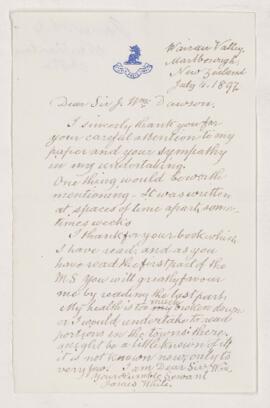 Wairau Valley,
Marlborough,
New Zealand
July 4. 1897
Dear Sir J. Wm. Dawson.
I sincerely thank you for
your careful attention to my
paper and your sympathy
in my undertaking.
One thing would be worth
mentioning - It was written
at spaces of time apart, some-
times weeks.
I thank for your book which
I have read, and as you
have read the first part of the
M.S. you will greatly favour
me by reading the last part.
My health is too much broken down
or I would undertake to read
portions in the towns: there
might be a little known of it
it is not known now, only to
very few. I am Dear Sir Wm
Your humble servant
James White.